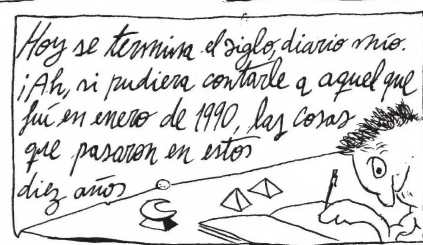 Hoy se termina el siglo, diario mío.
¡Ah, si pudiera contarle a aquel que
fuí en enero de 1990, las cosas
que pasaron en estos
diez años